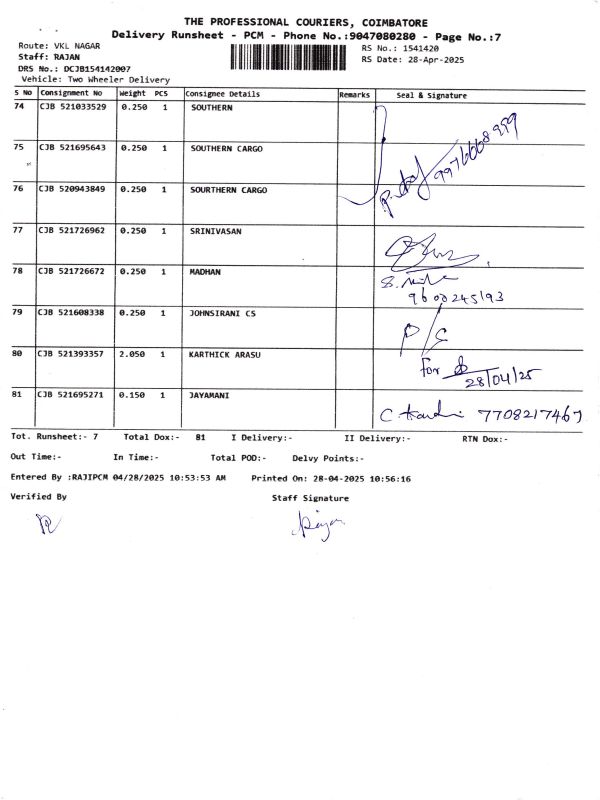 THE PROFESSIONAL COURIERS, COIMBATORE
Delivery Runsheet - PCM - Phone No.:9047080280 - Page No.:7
Route: VKL NAGAR
Staff: RAJAN
DRS No.: DCJB154142007
Vehicle: Two Wheeler Delivery
RS No.: 1541420
RS Date: 28-Apr-2025
S No Consignment No Weight PCS Consignee Details Remarks Seal & Signature
74 CJB 521033529 0.250 1 SOUTHERN
75 CJB 521695643 0.250 1 SOUTHERN CARGO
76 CJB 520943849 0.250 1 SOURTHERN CARGO
77 CJB 521726962 0.250 1 SRINIVASAN
78 CJB 521726672 0.250 1 MADHAN
9600245193
79 CJB 521608338 0.250 1 JOHNSIRANI CS
P/C
80 CJB 521393357 2.050 1 KARTHICK ARASU
For
28/04/25
81 CJB 521695271 0.150 1 JAYAMANI
7708217467
Tot. Runsheet:- 7 Total Dox:- 81 I Delivery:- II Delivery:- RTN Dox:-
Out Time:- In Time:- Total POD:- Delvy Points:-
Entered By :RAJIPCM 04/28/2025 10:53:53 AM Printed On: 28-04-2025 10:56:16
Verified By Staff Signature